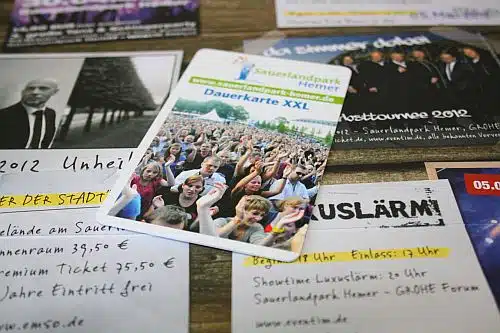 05. Mai 2012
Immer dabei
Herbsttournee 2012
2012 - Sauerlandpark Hemer, GROHE
www.eventim.de, alle bekannten Vorver
Sauerlandpark
Hemer
www.sauerlandpark-hemer.de
Dauerkarte XXL
2012 Unheil
ER DER STADT
elände am Sauer
nnenraum 39,50 €
remium Ticket 75,50 €
Jahre Eintritt frei
w.em50.de
05.0
XUSLÄRM
Beginn: 18 Uhr Einlass: 17 Uhr
Showtime Luxuslärm: 20 Uhr
Sauerlandpark Hemer - GROHE Forum
www.eventim.de